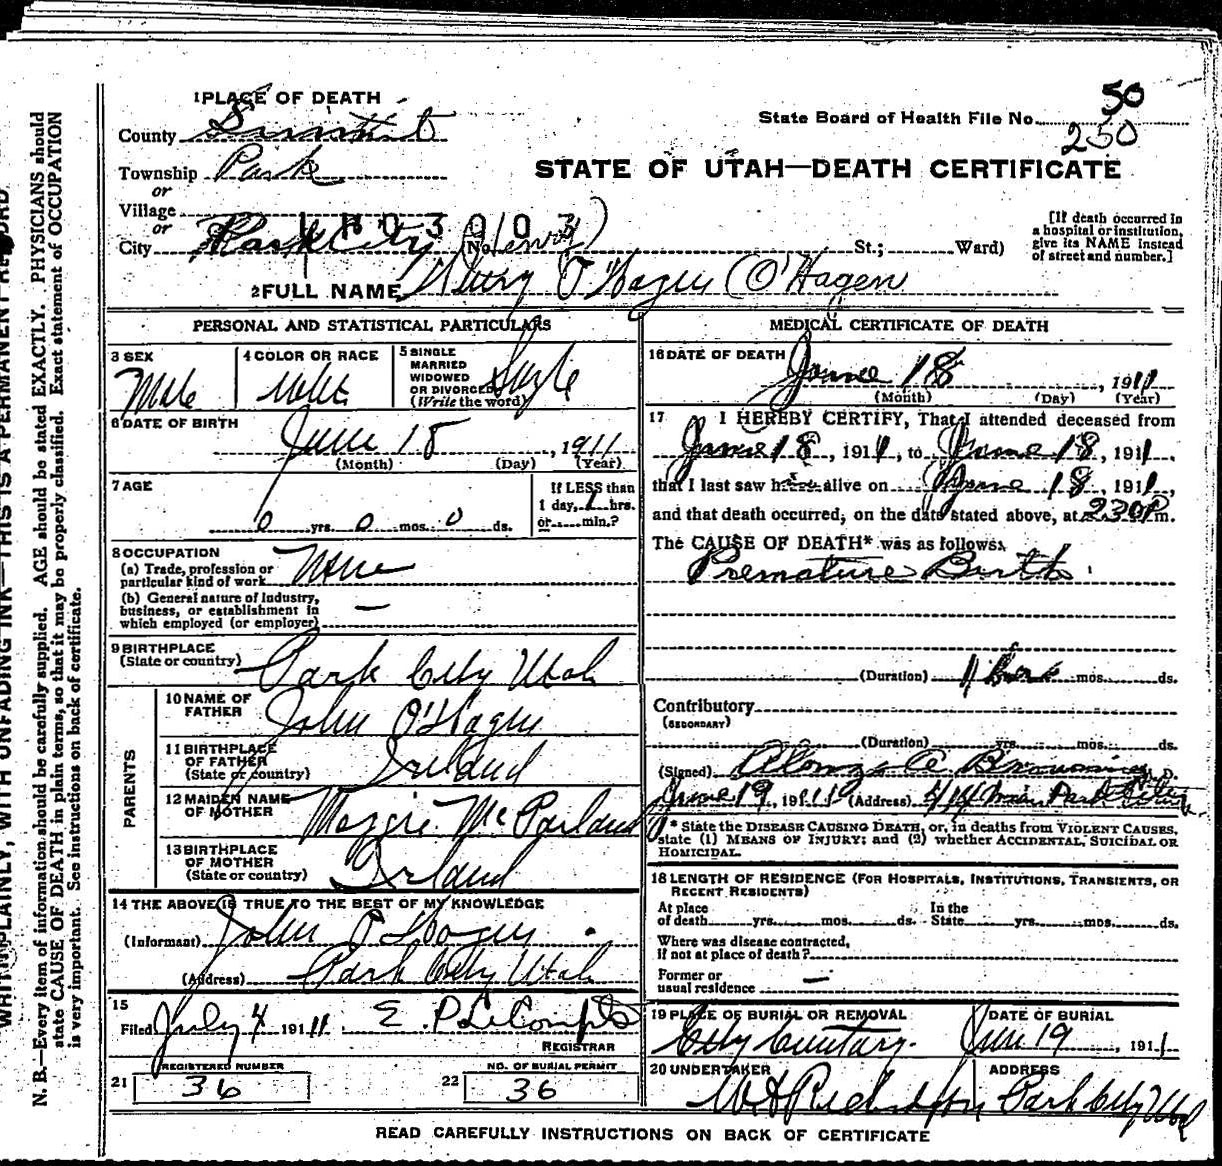 1 PLACE OF DEATH
County Summit
State Board of Health File No. 50
250
Township Park
STATE OF UTAH—DEATH CERTIFICATE
or
Village
or
City Park City (No. St.; Ward)
[If death occurred in
a hospital or institution,
give its NAME instead
of street and number.]
2 FULL NAME O'Hagen (O'Hagen
PERSONAL AND STATISTICAL PARTICULARS
3 SEX
Male
4 COLOR OR RACE
White
5 SINGLE
MARRIED
WIDOWED
OR DIVORCED
(Write the word)
Single
6 DATE OF BIRTH
June 18, 1911
(Month) (Day) (Year)
7 AGE
0 yrs. 0 mos. 0 ds.
If LESS than
1 day, 1 hrs.
or min.?
8 OCCUPATION
(a) Trade, profession or
particular kind of work None
(b) General nature of Industry,
business, or establishment in
which employed (or employer) —
9 BIRTHPLACE
(State or country) Park City Utah
PARENTS
10 NAME OF
FATHER John O'Hagen
11 BIRTHPLACE
OF FATHER
(State or country) Ireland
12 MAIDEN NAME
OF MOTHER Maggie McParland
13 BIRTHPLACE
OF MOTHER
(State or country) Ireland
14 THE ABOVE IS TRUE TO THE BEST OF MY KNOWLEDGE
(Informant) John O'Hagen
(Address) Park City Utah
15
Filed July 4 1911 E. P. LeCompte
REGISTRAR
REGISTERED NUMBER
21 36
NO. OF BURIAL PERMIT
22 36
MEDICAL CERTIFICATE OF DEATH
16 DATE OF DEATH
June 18, 1911
(Month) (Day) (Year)
17 I HEREBY CERTIFY, That I attended deceased from
June 18, 1911, to June 18, 1911,
that I last saw h alive on June 18, 1911,
and that death occurred, on the date stated above, at 230 P m.
The CAUSE OF DEATH* was as follows:
Premature Birth
(Duration) mos. ds.
Contributory
(SECONDARY)
(Duration) yrs. mos. ds.
(Signed) Alonzo A Browning M. D.
June 19, 1911 (Address) 414 Main Park City
* State the DISEASE CAUSING DEATH, or, in deaths from VIOLENT CAUSES,
state (1) MEANS OF INJURY; and (2) whether ACCIDENTAL, SUICIDAL OR
HOMICIDAL.
18 LENGTH OF RESIDENCE (FOR HOSPITALS, INSTITUTIONS, TRANSIENTS, OR
RECENT RESIDENTS)
At place In the
of death yrs. mos. ds. State yrs. mos. ds.
Where was disease contracted,
if not at place of death?
Former or
usual residence —
19 PLACE OF BURIAL OR REMOVAL
City Cemetary.
DATE OF BURIAL
June 19, 1911
20 UNDERTAKER
W H Richardson
ADDRESS
Park City Utah
READ CAREFULLY INSTRUCTIONS ON BACK OF CERTIFICATE
WRITE PLAINLY, WITH UNFADING INK—THIS IS A PERMANENT RECORD
N. B.—Every item of information should be carefully supplied. AGE should be stated EXACTLY. PHYSICIANS should
state CAUSE OF DEATH in plain terms, so that it may be properly classified. Exact statement of OCCUPATION
is very important. See instructions on back of certificate.